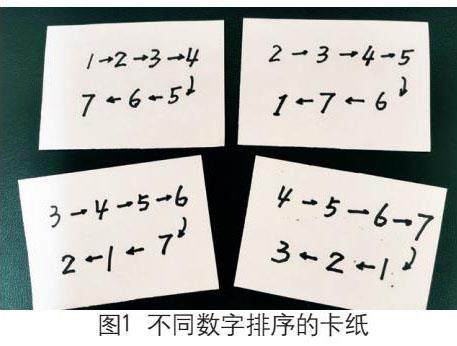 1→2→3→4
7←6←5
2→3→4→5
1←7←6
3→4→5→6
2←1←7
4→5→6→7
3←2←1
图1 不同数字排序的卡纸